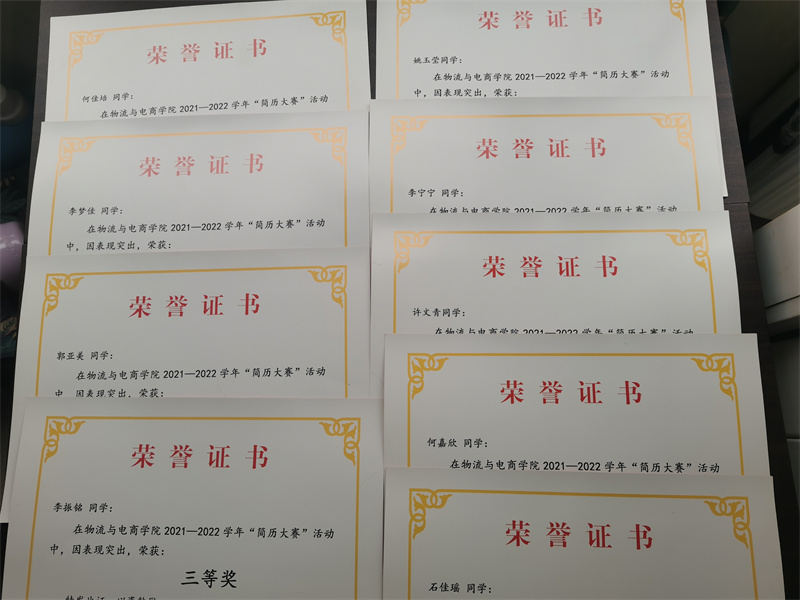 荣誉证书
何佳培 同学：
在物流与电商学院 2021—2022 学年“简历大赛”活动
荣誉证书
李梦佳 同学：
在物流与电商学院 2021—2022 学年“简历大赛”活动
中，因表现突出，荣获：
荣誉证书
郭亚美 同学：
在物流与电商学院 2021—2022 学年“简历大赛”活动
中，因表现突出，荣获：
荣誉证书
李振铭 同学：
在物流与电商学院 2021—2022 学年“简历大赛”活动
中，因表现突出，荣获：
三等奖
荣誉证书
姚玉莹同学：
在物流与电商学院 2021—2022 学年“简历大赛”活动
中，因表现突出，荣获：
荣誉证书
李宁宁 同学：
在物流与电商学院 2021—2022 学年“简历大赛”活动
荣誉证书
许文青同学：
在物流与电商学院 2021—2022 学年“简历大赛”活动
荣誉证书
何嘉欣 同学：
在物流与电商学院 2021—2022 学年“简历大赛”活动
荣誉证书
石佳瑶 同学：